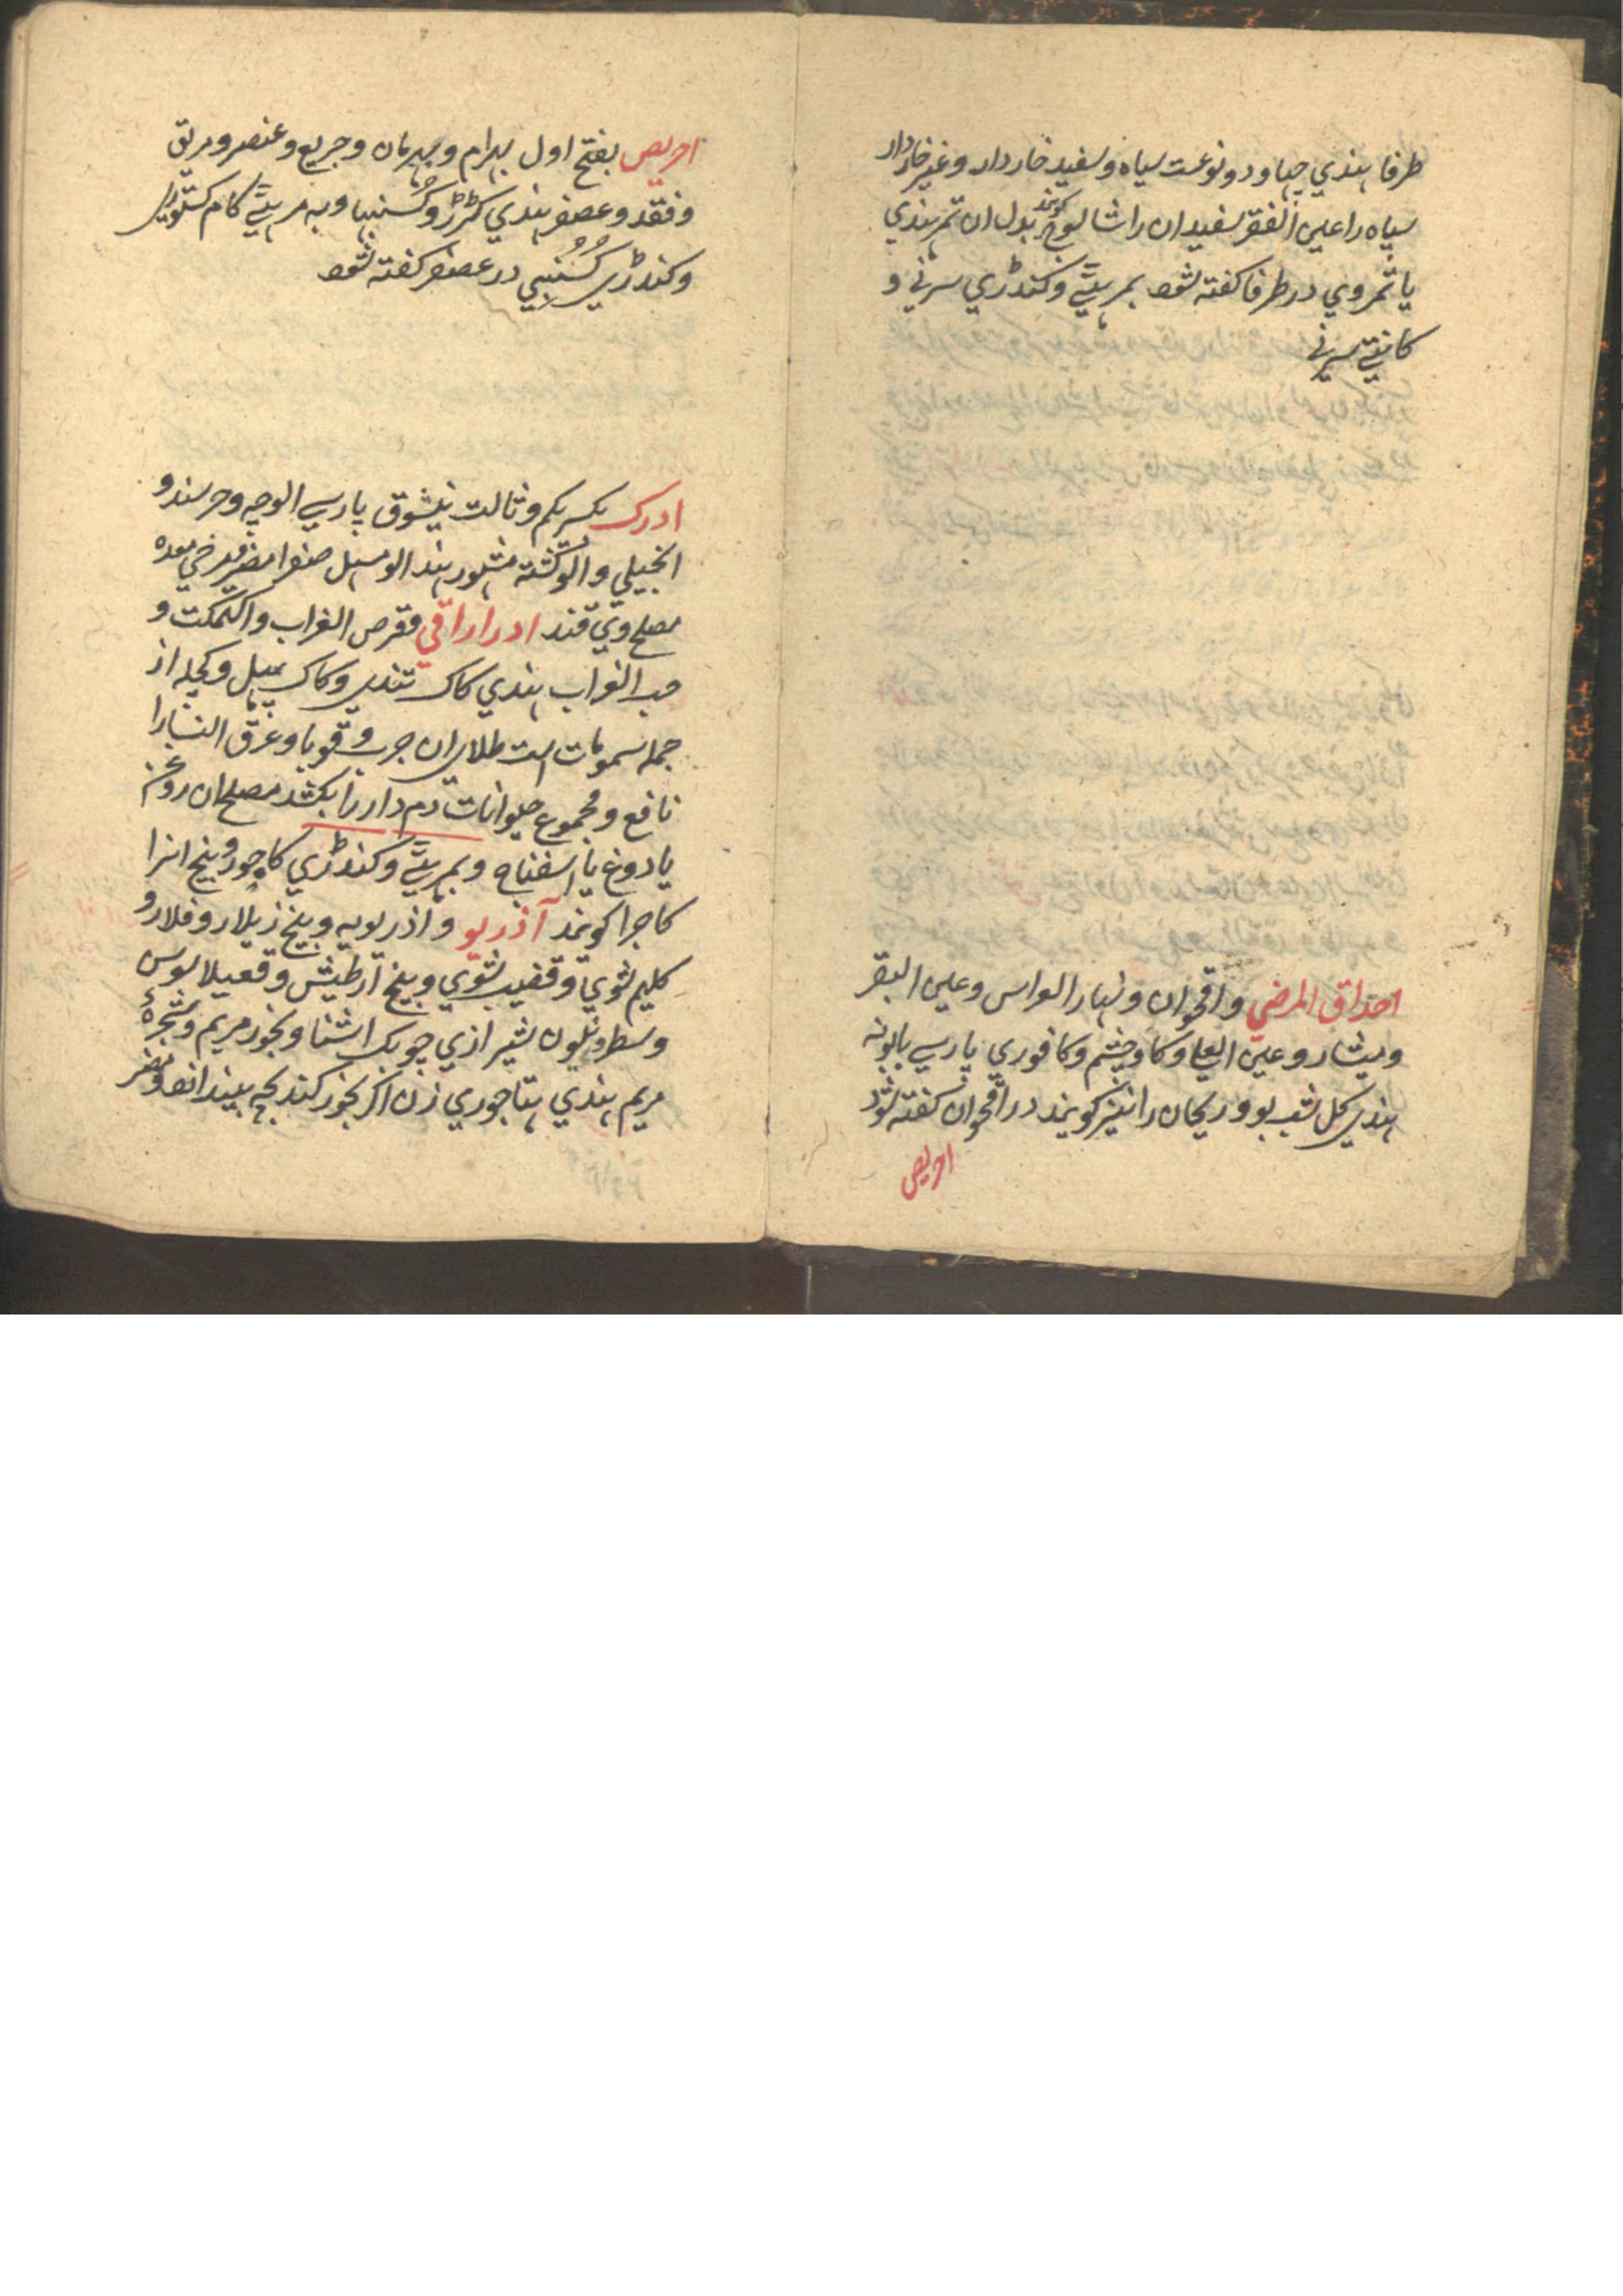 طرفا هندي جهاو دو نوعست سياه و سفيد خاردار و غير خاردار
سياه را عين الفقر سفيد ان را شالوخ كويند بدل ان تمر هندي
يا ثمر وي در طرفا كفته شود بمرهٹي و كنڈري سرني و
كانيٹي سرني
احداق المرضي و اقحوان و بهار الواس و عين البقر
و مبشار و عين اعلي و كاوچشم و كافوري پارسي بابونه
هندي كل شب بو و ريحان را نيز كويند در اقحوان كفته شود
احريض
احريض بفتح اول بهرام و بهرمان و جريع و عنصر و مريق
و فقد و عصفر هندي كڑڑ و كسنبها و به مرهٹي كام
و كنڈري كسنبي در عصفر كفته شود
ادرك بكسر يكم و ثالث نيشوق پارسي الوچه و حرسندو
انجيلي و الوكشته مشهور هند الو مسهل صفرا مضر مرخي معده
مصلح وي قند ادراراقي و قرص الغراب و اكتمكت و
حب الغراب هندي كاك تندي و كاك پهل و كچله از
جمله سمومات است طلاي ان جرب و قوبا و عرق النسا را
نافع و مجموع حيوانات دم دار را بكشد مصلح ان روغن
يا دوغ يا اسفناج و بمرهٹي و كنڈري كاجور و بيخ انرا
كاجرا كويند آذربو و اذربويه و بيخ زيلار و فلارو
كليم شوي و قضيب شوي و بيخ آرطيش و قعيلا بوس
و سطرونيون شيرازي چوبك اشنا و بخور مريم و شجرة
مريم هندي هتاجوري زن اكر بخور كند بچه بيندازد و مضر